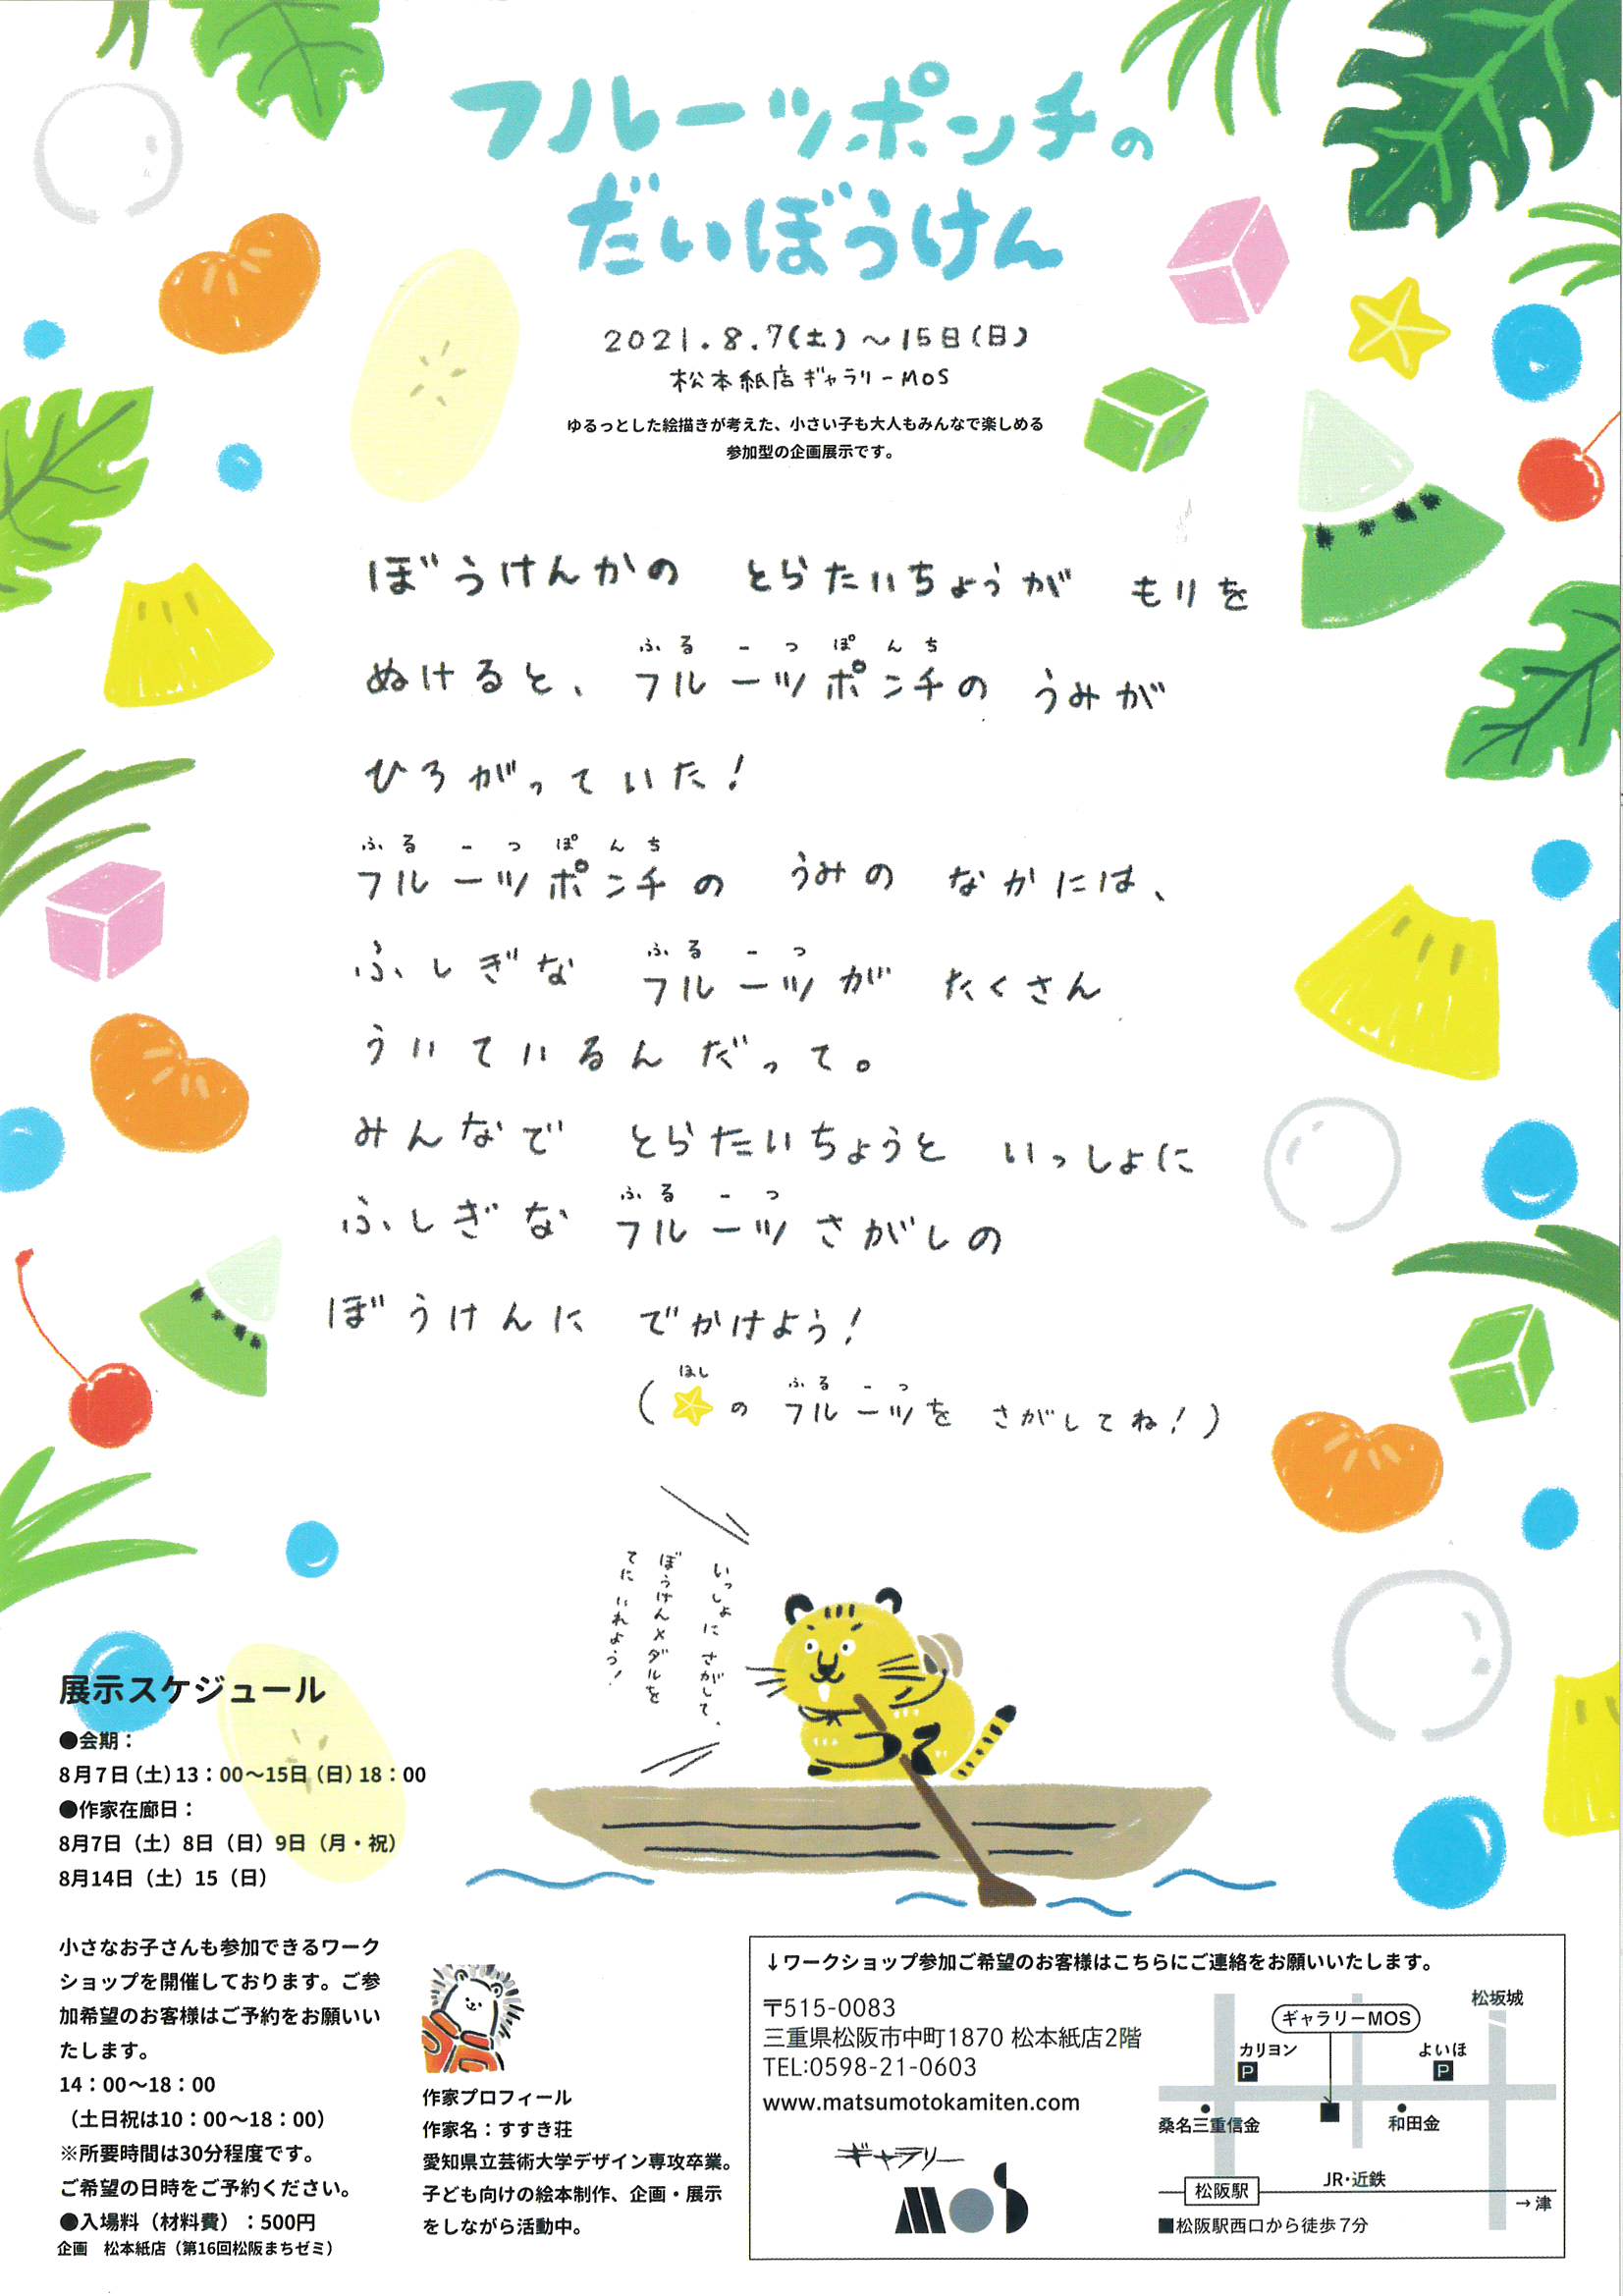 フルーツポンチの
だいぼうけん
2021.8.7(土)～15日(日)
松本紙店ギャラリーMOS
ゆるっとした絵描きが考えた、小さい子も大人もみんなで楽しめる
参加型の企画展示です。
ぼうけんかの とらたいちょうが もりを
ふるーつぽんち
ぬけると、フルーツポンチの うみが
ひろがっていた！
ふるーつぽんち
フルーツポンチの うみの なかには、
ふるーつ
ふしぎな フルーツが たくさん
ういているんだって。
みんなで とらたいちょうと いっしょに
ふるーつ
ふしぎな フルーツさがしの
ぼうけんに でかけよう！
ほし ふるーつ
(の フルーツを さがしてね！)
いっしょに さがして、
ぼうけんメダルを
てに いれよう！
展示スケジュール
●会期：
8月7日（土）13：00～15日（日）18：00
●作家在廊日：
8月7日（土）8日（日）9日（月・祝）
8月14日（土）15（日）
小さなお子さんも参加できるワーク
ショップを開催しております。ご参
加希望のお客様はご予約をお願いい
たします。
14：00～18：00
（土日祝は10：00～18：00）
※所要時間は30分程度です。
ご希望の日時をご予約ください。
●入場料（材料費）：500円
企画　松本紙店（第16回松阪まちゼミ）
作家プロフィール
作家名：すすき荘
愛知県立芸術大学デザイン専攻卒業。
子ども向けの絵本制作、企画・展示
をしながら活動中。
↓ワークショップ参加ご希望のお客様はこちらにご連絡をお願いいたします。
〒515-0083
三重県松阪市中町1870 松本紙店2階
TEL:0598-21-0603
www.matsumotokamiten.com
ギャラリー
MOS
松坂城
ギャラリーMOS
カリヨン
P
よいほ
P
桑名三重信金
和田金
JR・近鉄
松阪駅
→津
■松阪駅西口から徒歩7分